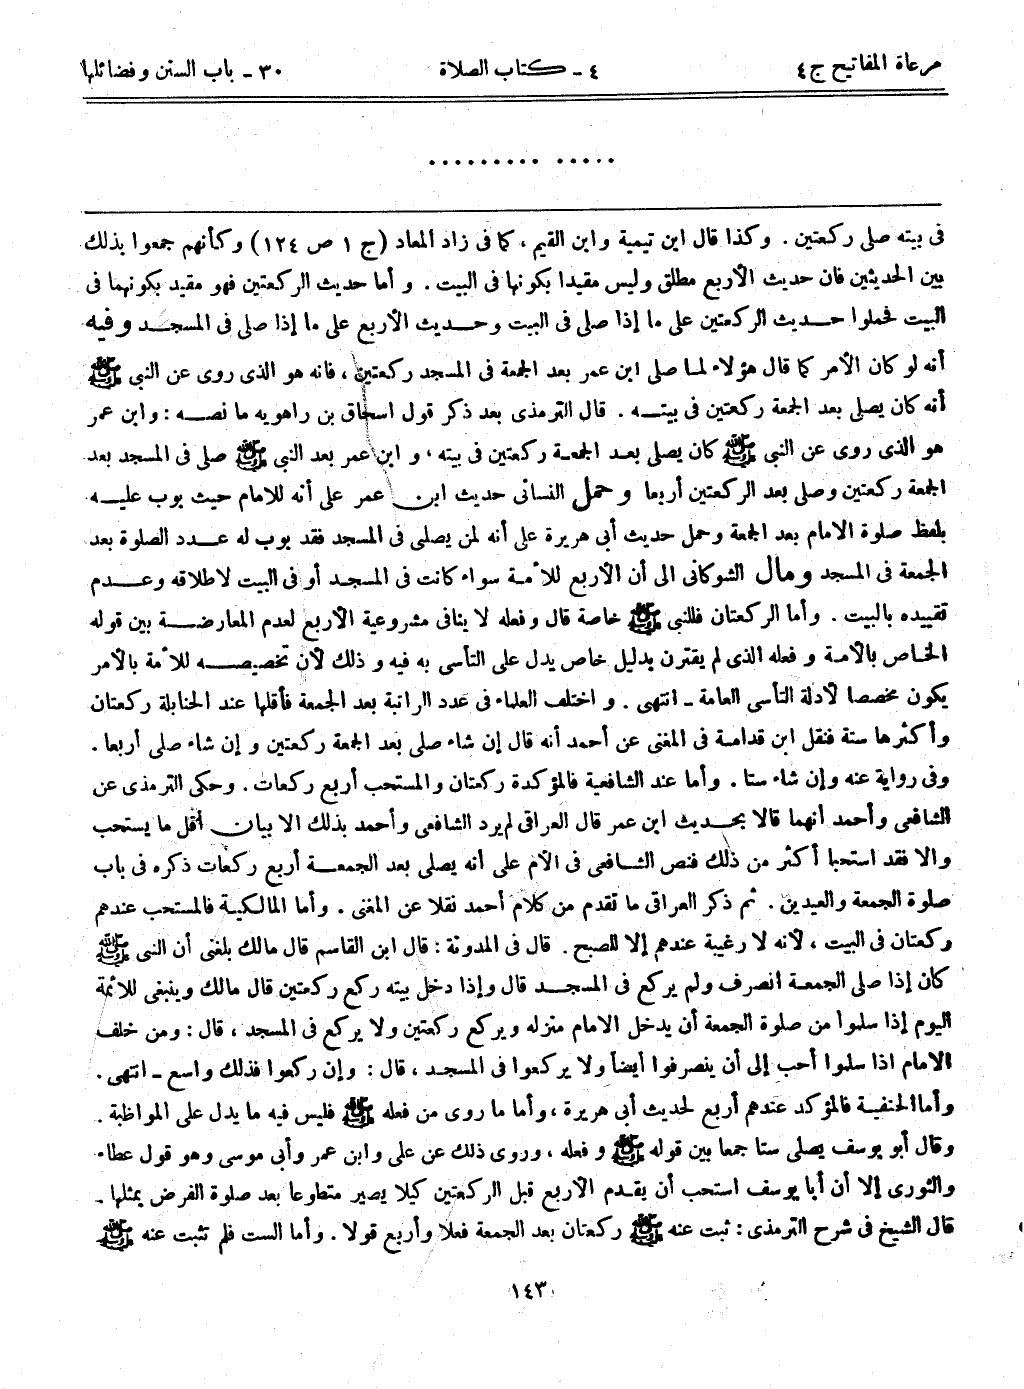 مرعاة المفاتيح ج ٤
٤ ـ كتاب الصلاة
٣٠ ـ باب السنن وفضائلها
..... .........
فى بيته صلى ركعتين . وكذا قال ابن تيمية وابن القيم ، كما فى زاد المعاد (ج ١ ص ١٢٤) وكأنهم جمعوا بذلك
بين الحديثين فان حديث الأربع مطلق وليس مقيدا بكونها فى البيت . و أما حديث الركعتين فهو مقيد بكونهما فى
البيت فحملوا حديث الركعتين على ما إذا صلى فى البيت وحديث الأربع على ما إذا صلى فى المسجد وفيه
أنه لو كان الأمر كما قال هؤلاء لما صلى ابن عمر بعد الجمعة فى المسجد ركعتين ، فانه هو الذى روى عن النبى ﷺ
أنه كان يصلى بعد الجمعة ركعتين فى بيته . قال الترمذى بعد ذكر قول اسحاق بن راهويه ما نصه : وابن عمر
هو الذى روى عن النبى ﷺ كان يصلى بعد الجمعة ركعتين فى بيته ، و ابن عمر بعد النبى ﷺ صلى فى المسجد بعد
الجمعة ركعتين وصلى بعد الركعتين أربعا وحمل النسائى حديث ابن عمر على أنه للامام حيث بوب عليه
بلفظ صلوة الامام بعد الجمعة وحمل حديث أبى هريرة على أنه لمن يصلى فى المسجد فقد بوب له عدد الصلوة بعد
الجمعة فى المسجد ومال الشوكانى الى أن الأربع للأمة سواء كانت فى المسجد أو فى البيت لاطلاقه وعدم
تقييده بالبيت . وأما الركعتان فللنبى ﷺ خاصة قال وفعله لا ينافى مشروعية الأربع لعدم المعارضة بين قوله
الخاص بالأمة و فعله الذى لم يقترن بدليل خاص يدل على التأسى به فيه و ذلك لأن تخصيصه للأمة بالأمر
يكون مخصصا لأدلة التأسى العامة ـ انتهى . و اختلف العلماء فى عدد الراتبة بعد الجمعة فأقلها عند الحنابلة ركعتان
وأكثرها ستة فنقل ابن قدامة فى المغنى عن أحمد أنه قال إن شاء صلى بعد الجمعة ركعتين و إن شاء صلى أربعا .
وفى رواية عنه وإن شاء ستا . وأما عند الشافعية فالمؤكدة ركعتان والمستحب أربع ركعات . وحكى الترمذى عن
الشافعى وأحمد أنهما قالا بحديث ابن عمر قال العراقى لم يرد الشافعى وأحمد بذلك الا بيان أقل ما يستحب
والا فقد استحبا أكثر من ذلك فنص الشافعى فى الأم على أنه يصلى بعد الجمعة أربع ركعات ذكره فى باب
صلوة الجمعة والعيدين . ثم ذكر العراقى ما تقدم من كلام أحمد نقلا عن المغنى . وأما المالكية فالمستحب عندهم
ركعتان فى البيت ، لأنه لا رغيبة عندهم إلا للصبح . قال فى المدونة : قال ابن القاسم قال مالك بلغنى أن النبى ﷺ
كان إذا صلى الجمعة انصرف ولم يركع فى المسجد قال وإذا دخل بيته ركع ركعتين قال مالك وينبغى للائمة
اليوم إذا سلموا من صلوة الجمعة أن يدخل الامام منزله ويركع ركعتين ولا يركع فى المسجد ، قال : ومن خلف
الامام اذا سلموا أحب إلى أن ينصرفوا أيضاً ولا يركعوا فى المسجد ، قال : وإن ركعوا فذلك واسع ـ انتهى .
وأما الحنفية فالمؤكد عندهم أربع لحديث أبى هريرة ، وأما ما روى من فعله ﷺ فليس فيه ما يدل على المواظبة .
وقال أبو يوسف يصلى ستا جمعا بين قوله ﷺ و فعله ، وروى ذلك عن على وابن عمر وأبى موسى وهو قول عطاء
والثورى إلا أن أبا يوسف استحب أن يقدم الأربع قبل الركعتين كيلا يصير متطوعا بعد صلوة الفرض بمثلها .
قال الشيخ فى شرح الترمذى : ثبت عنه ﷺ ركعتان بعد الجمعة فعلا وأربع قولا . وأما الست فلم تثبت عنه ﷺ
١٤٣